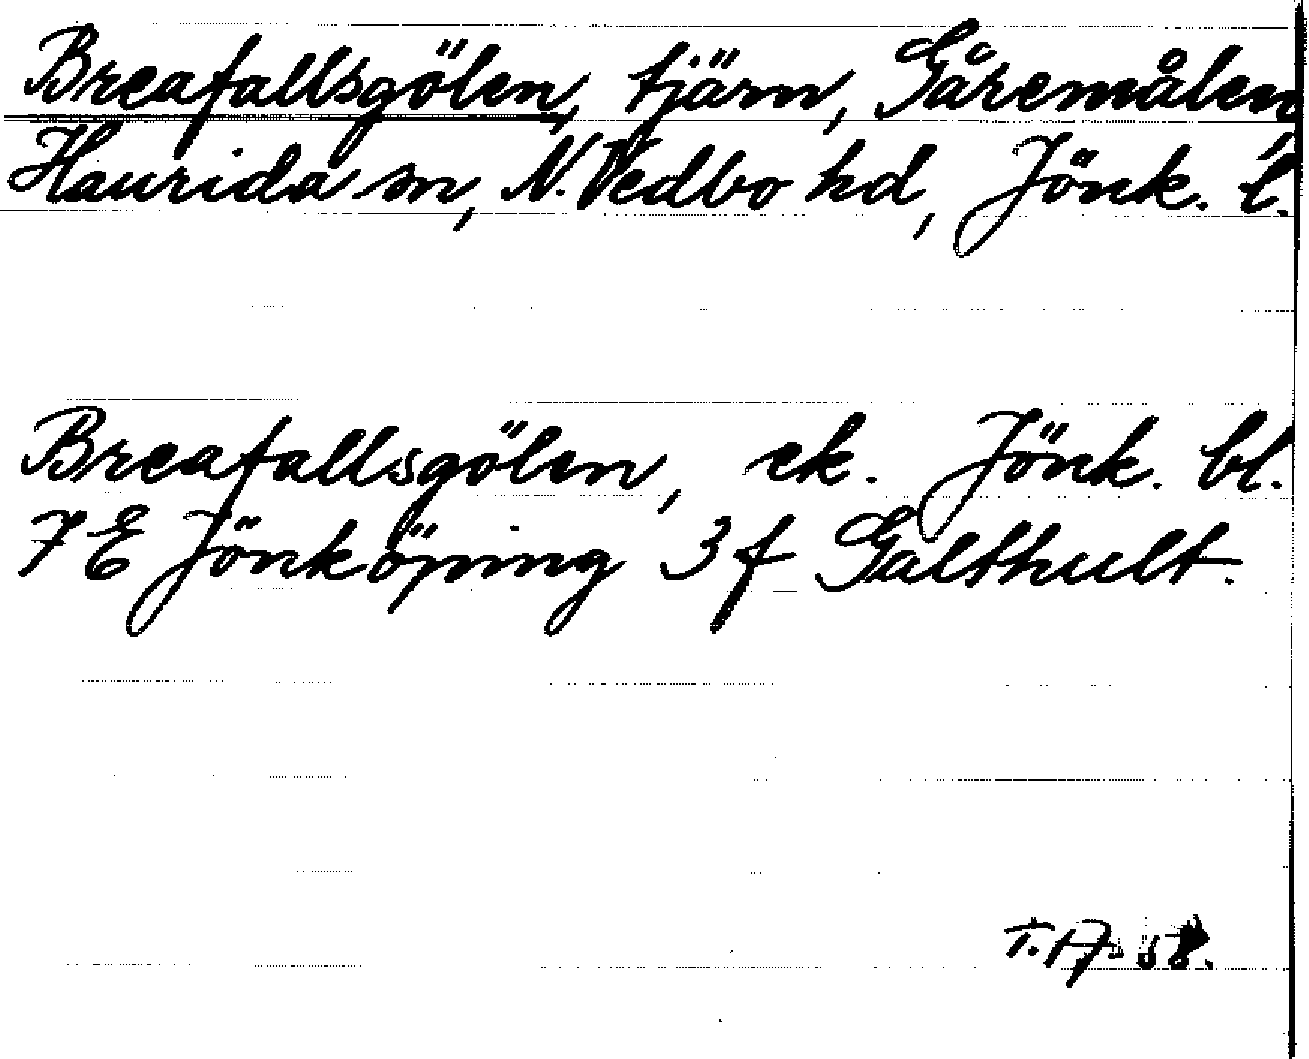 Breafallsgölen, tjärn, Gåremålen,
Haurida sn, N. Vedbo hd, Jönk. l.
Breafallsgölen, ek. Jönk. bl.
7E Jönköping 3f Galthult.